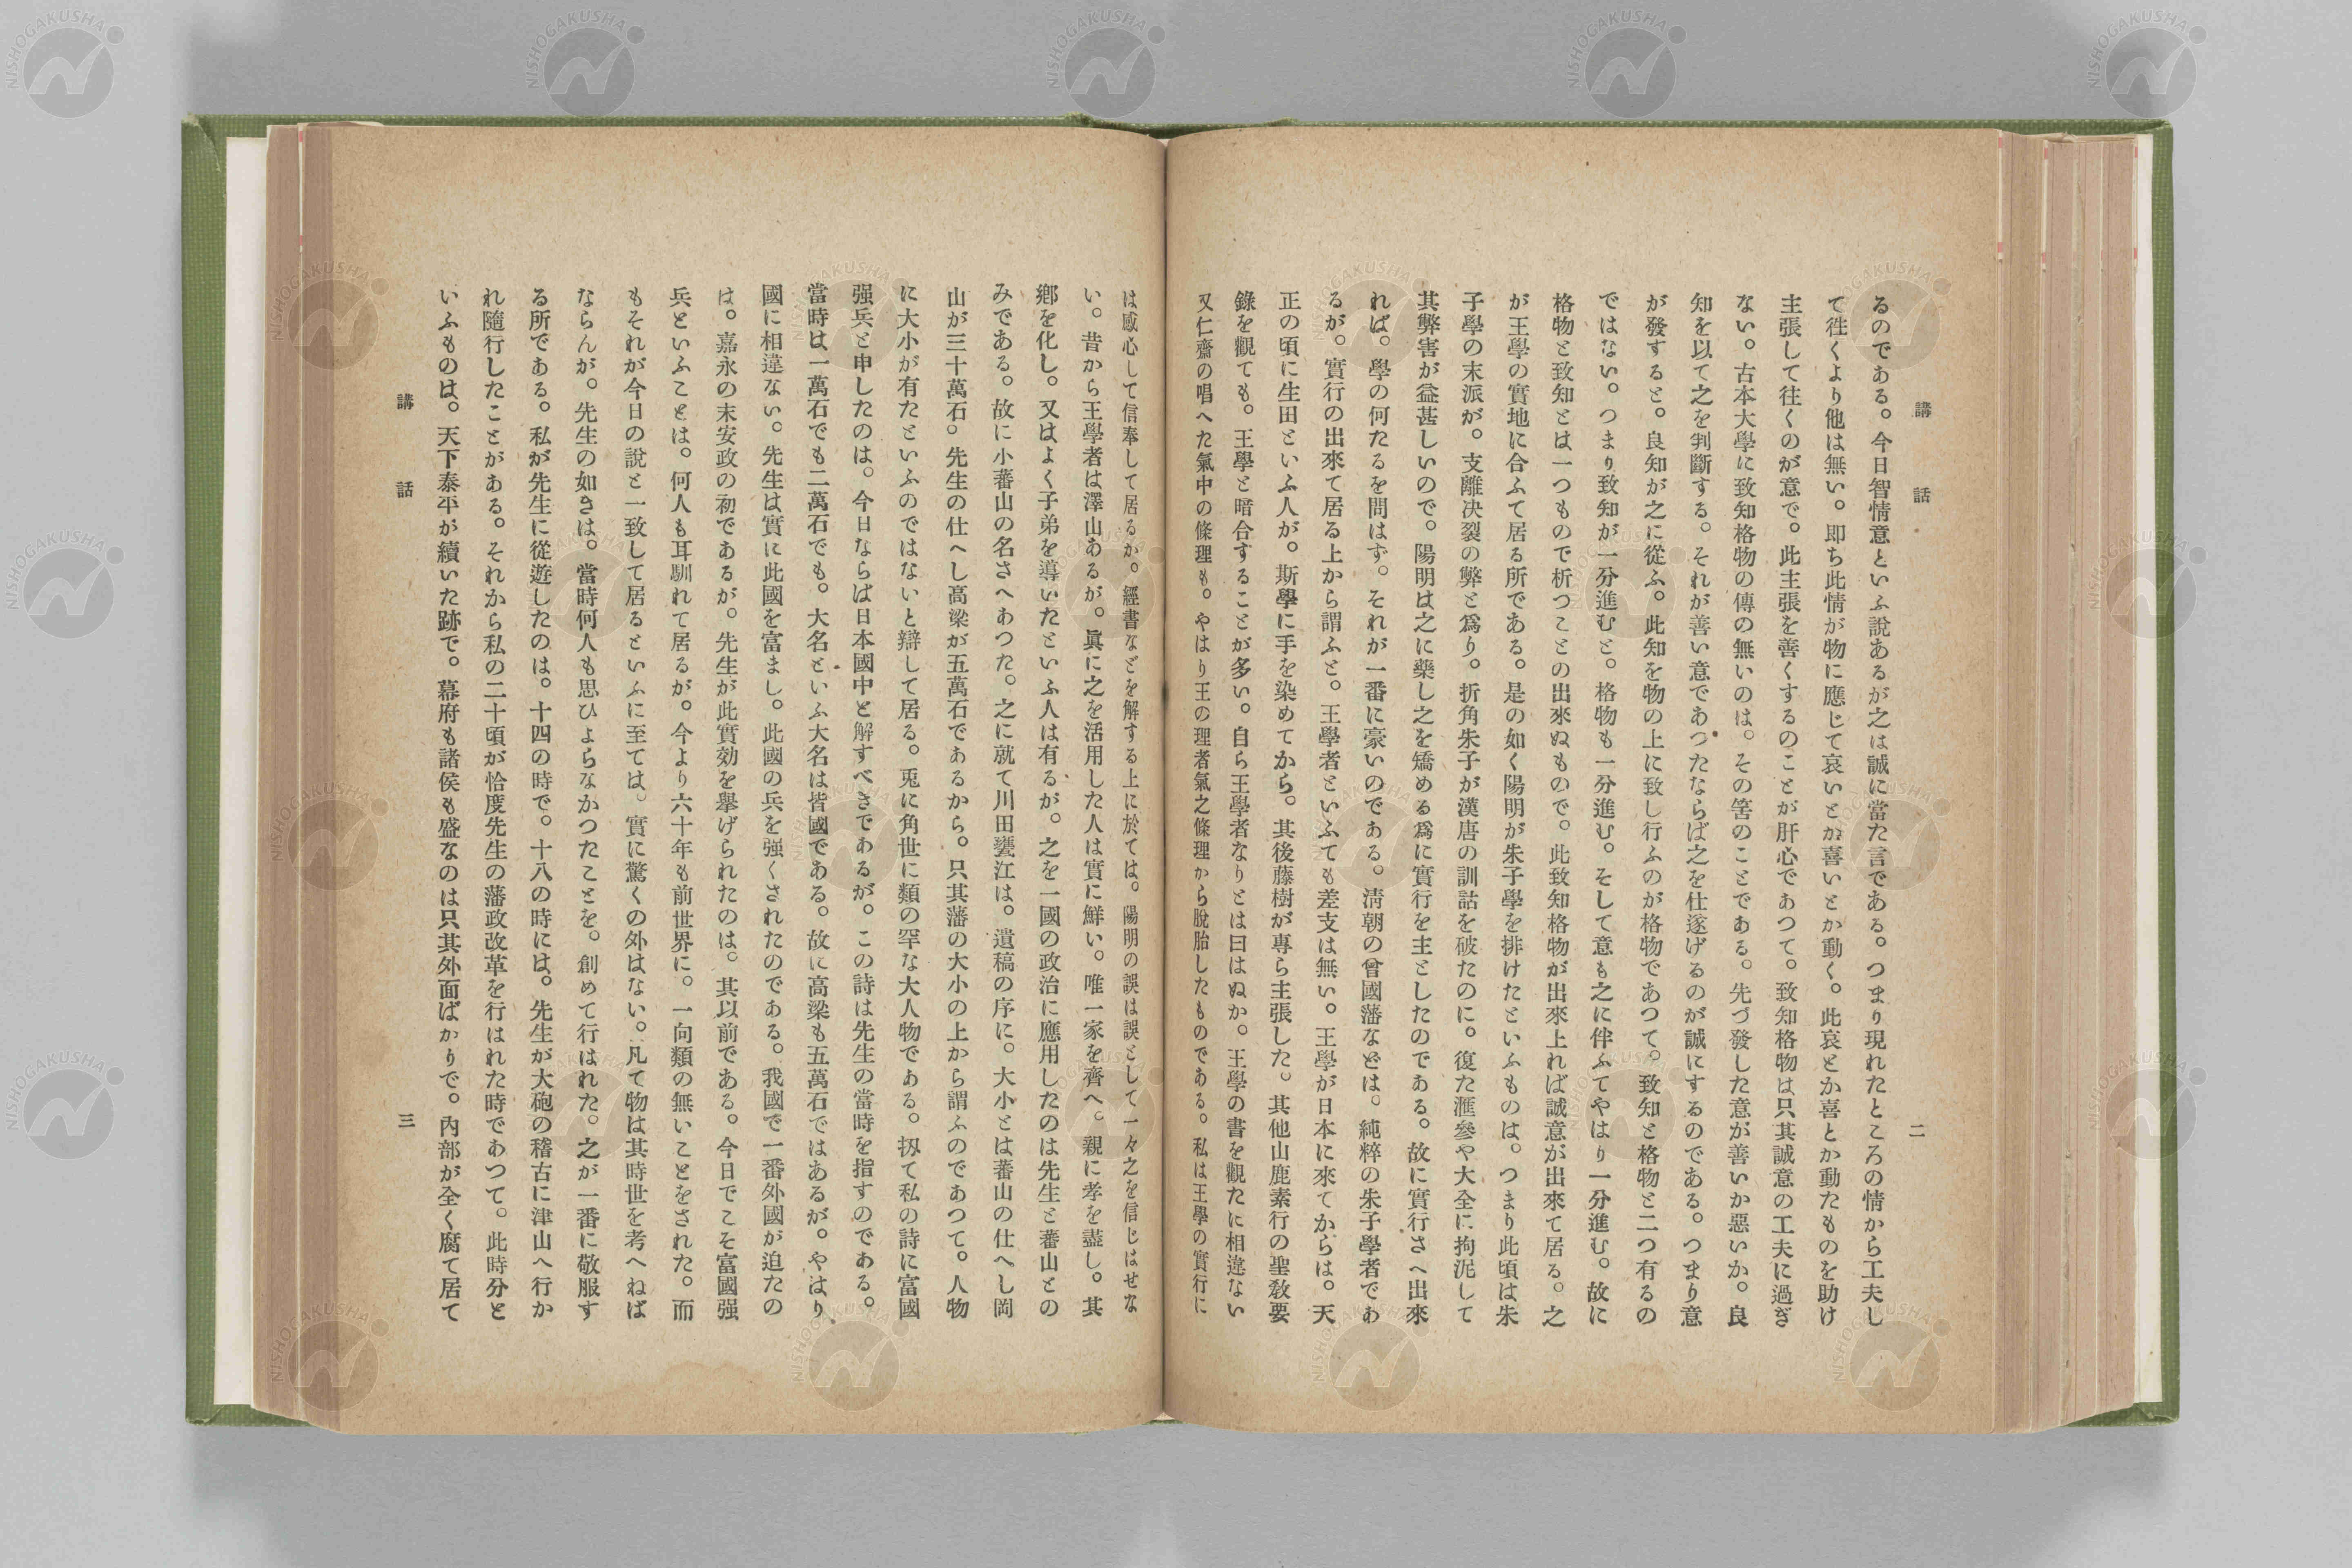 講話
二
るのである。今日智情意といふ說あるが之は誠に當た言である。つまり現れたところの情から工夫し
て徃くより他は無い。卽ち此情が物に應じて哀いとか喜いとか動く。此哀とか喜とか動たものを助け
主張して往くのが意で。此主張を善くするのことが肝心であつて。致知格物は只其誠意の工夫に過ぎ
ない。古本大學に致知格物の傳の無いのは。その筈のことである。先づ發した意が善いか惡いか。良
知を以て之を判斷する。それが善い意であつたならば之を仕遂げるのが誠にするのである。つまり意
が發すると。良知が之に從ふ。此知を物の上に致し行ふのが格物であつて。致知と格物と二つ有るの
ではない。つまり致知が一分進むと。格物も一分進む。そして意も之に伴ふてやはり一分進む。故に
格物と致知とは一つもので析つことの出來ぬもので。此致知格物が出來上れば誠意が出來て居る。之
が王學の實地に合ふて居る所である。是の如く陽明が朱子學を排けたといふものは。つまり此頃は朱
子學の末派が。支離決裂の弊と爲り。折角朱子が漢唐の訓詁を破たのに。復た滙參や大全に拘泥して
其弊害が益甚しいので。陽明は之に藥し之を矯める爲に實行を主としたのである。故に實行さへ出來
れば。學の何たるを問はず。それが一番に豪いのである。淸朝の曾國藩などは。純粹の朱子學者であ
るが。實行の出來て居る上から謂ふと。王學者といふても差支は無い。王學が日本に來てからは。天
正の頃に生田といふ人が。斯學に手を染めてから。其後藤樹が專ら主張した。其他山鹿素行の聖敎要
錄を觀ても。王學と暗合することが多い。自ら王學者なりとは曰はぬか。王學の書を觀たに相違ない
又仁齋の唱へた氣中の條理も。やはり王の理者氣之條理から脫胎したものである。私は王學の實行に
は感心して信奉して居るが。經書などを解する上に於ては。陽明の誤は誤として一々之を信じはせな
い。昔から王學者は澤山あるが。眞に之を活用した人は實に鮮い。唯一家を齊へ。親に孝を盡し。其
鄕を化し。又はよく子弟を導いたといふ人は有るが。之を一國の政治に應用したのは先生と蕃山との
みである。故に小蕃山の名さへあつた。之に就て川田甕江は。遺稿の序に。大小とは蕃山の仕へし岡
山が三十萬石。先生の仕へし高梁が五萬石であるから。只其藩の大小の上から謂ふのであつて。人物
に大小が有たといふのではないと辯して居る。兎に角世に類の罕な大人物である。扨て私の詩に富國
强兵と申したのは。今日ならば日本國中と解すべきであるが。この詩は先生の當時を指すのである。
當時は一萬石でも二萬石でも。大名といふ大名は皆國である。故に高梁も五萬石ではあるが。やはり
國に相違ない。先生は實に此國を富まし。此國の兵を强くされたのである。我國で一番外國が迫たの
は。嘉永の末安政の初であるが。先生が此實効を擧げられたのは。其以前である。今日でこそ富國强
兵といふことは。何人も耳馴れて居るが。今より六十年も前世界に。一向類の無いことをされた。而
もそれが今日の說と一致して居るといふに至ては。實に驚くの外はない。凡て物は其時世を考へねば
ならんが。先生の如きは。當時何人も思ひよらなかつたことを。創めて行はれた。之が一番に敬服す
る所である。私が先生に從遊したのは。十四の時で。十八の時には。先生が大砲の稽古に津山へ行か
れ隨行したことがある。それから私の二十頃が恰度先生の藩政改革を行はれた時であつて。此時分と
いふものは。天下泰平が續いた跡で。幕府も諸侯も盛なのは只其外面ばかりで。內部が全く腐て居て
講話
三